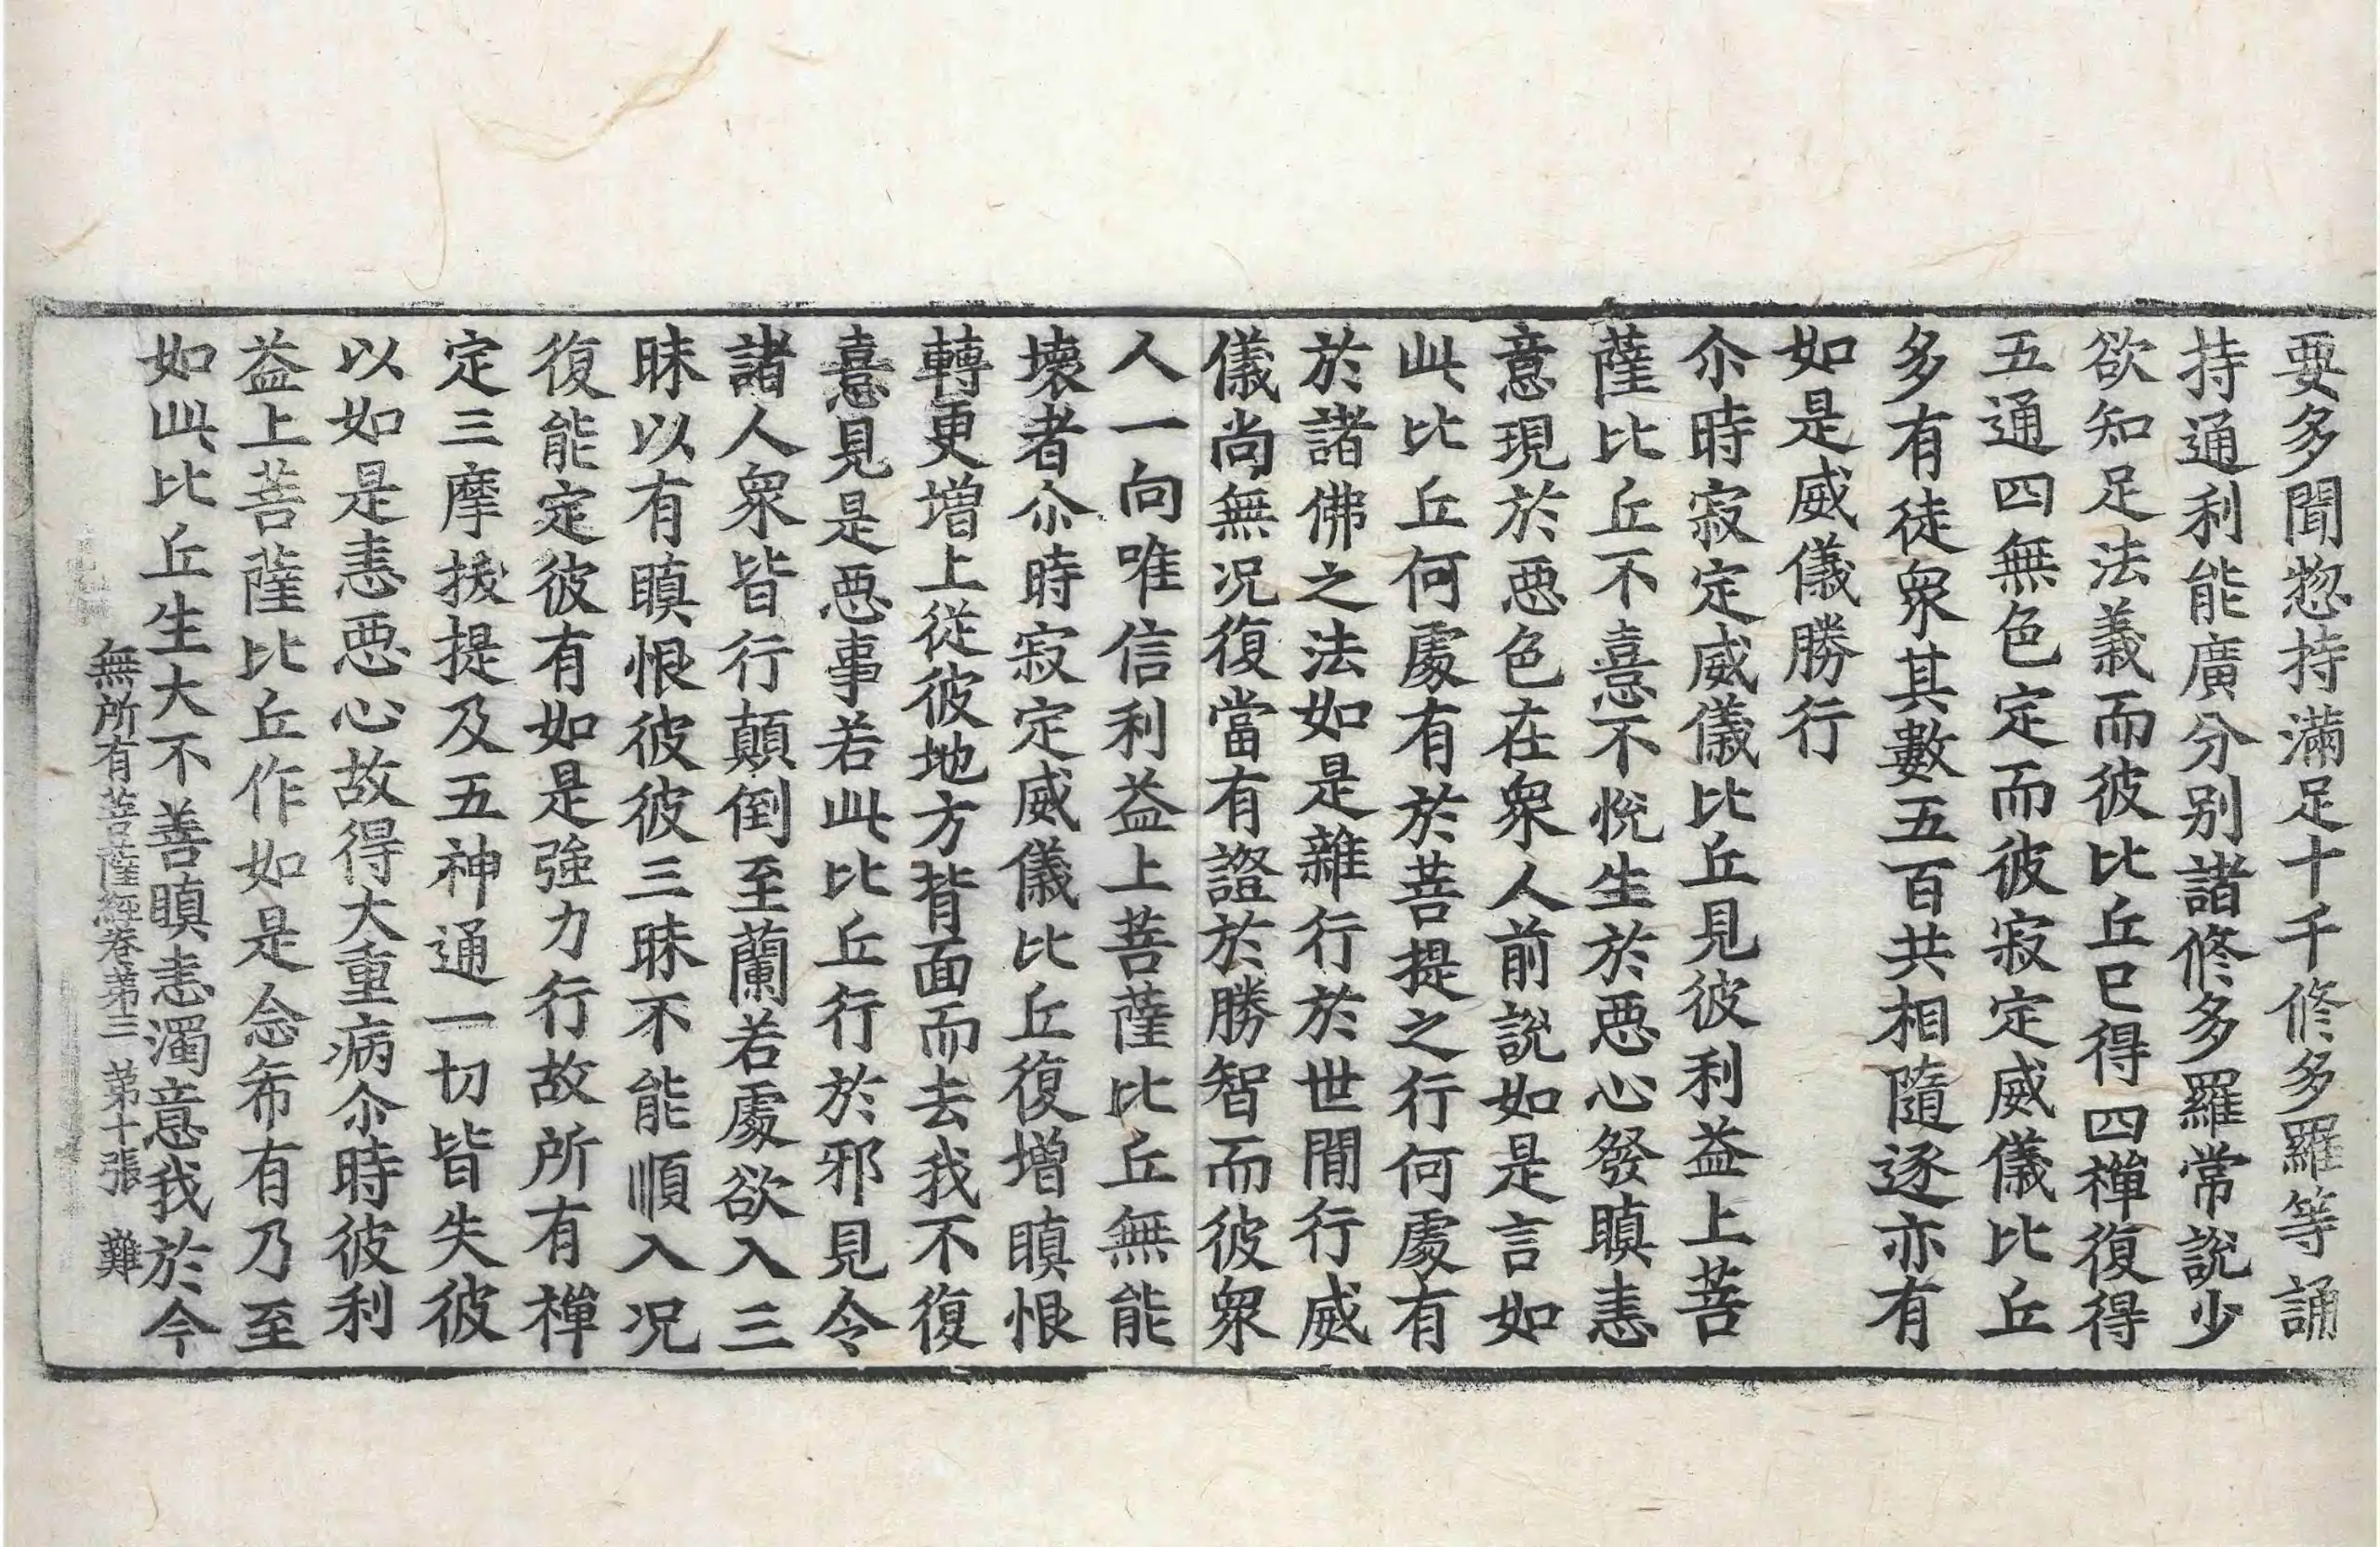 要多聞惣持滿足十千修多羅等誦
持通利能廣分別諸修多羅常說少
欲知足法義而彼比丘已得四禪復得
五通四無色定而彼寂定威儀比丘
多有徒衆其數五百共相隨逐亦有
如是威儀勝行
尒時寂定威儀比丘見彼利益上菩
薩比丘不憙不悅生於惡心發瞋恚
意現於惡色在衆人前說如是言如
此比丘何處有於菩提之行何處有
於諸佛之法如是雜行於世間行威
儀尚無况復當有證於勝智而彼衆
人一向唯信利益上菩薩比丘無能
壞者尒時寂定威儀比丘復增瞋恨
轉更增上從彼地方背面而去我不復
憙見是惡事若此比丘行於邪見令
諸人衆皆行顛倒至蘭若處欲入三
昧以有瞋恨彼彼三昧不能順入况
復能定彼有如是強力行故所有禪
定三摩拔提及五神通一切皆失彼
以如是恚惡心故得大重病尒時彼利
益上菩薩比丘作如是念希有乃至
如此比丘生大不善瞋恚濁意我於今
無所有菩薩經卷第三 第十張 難